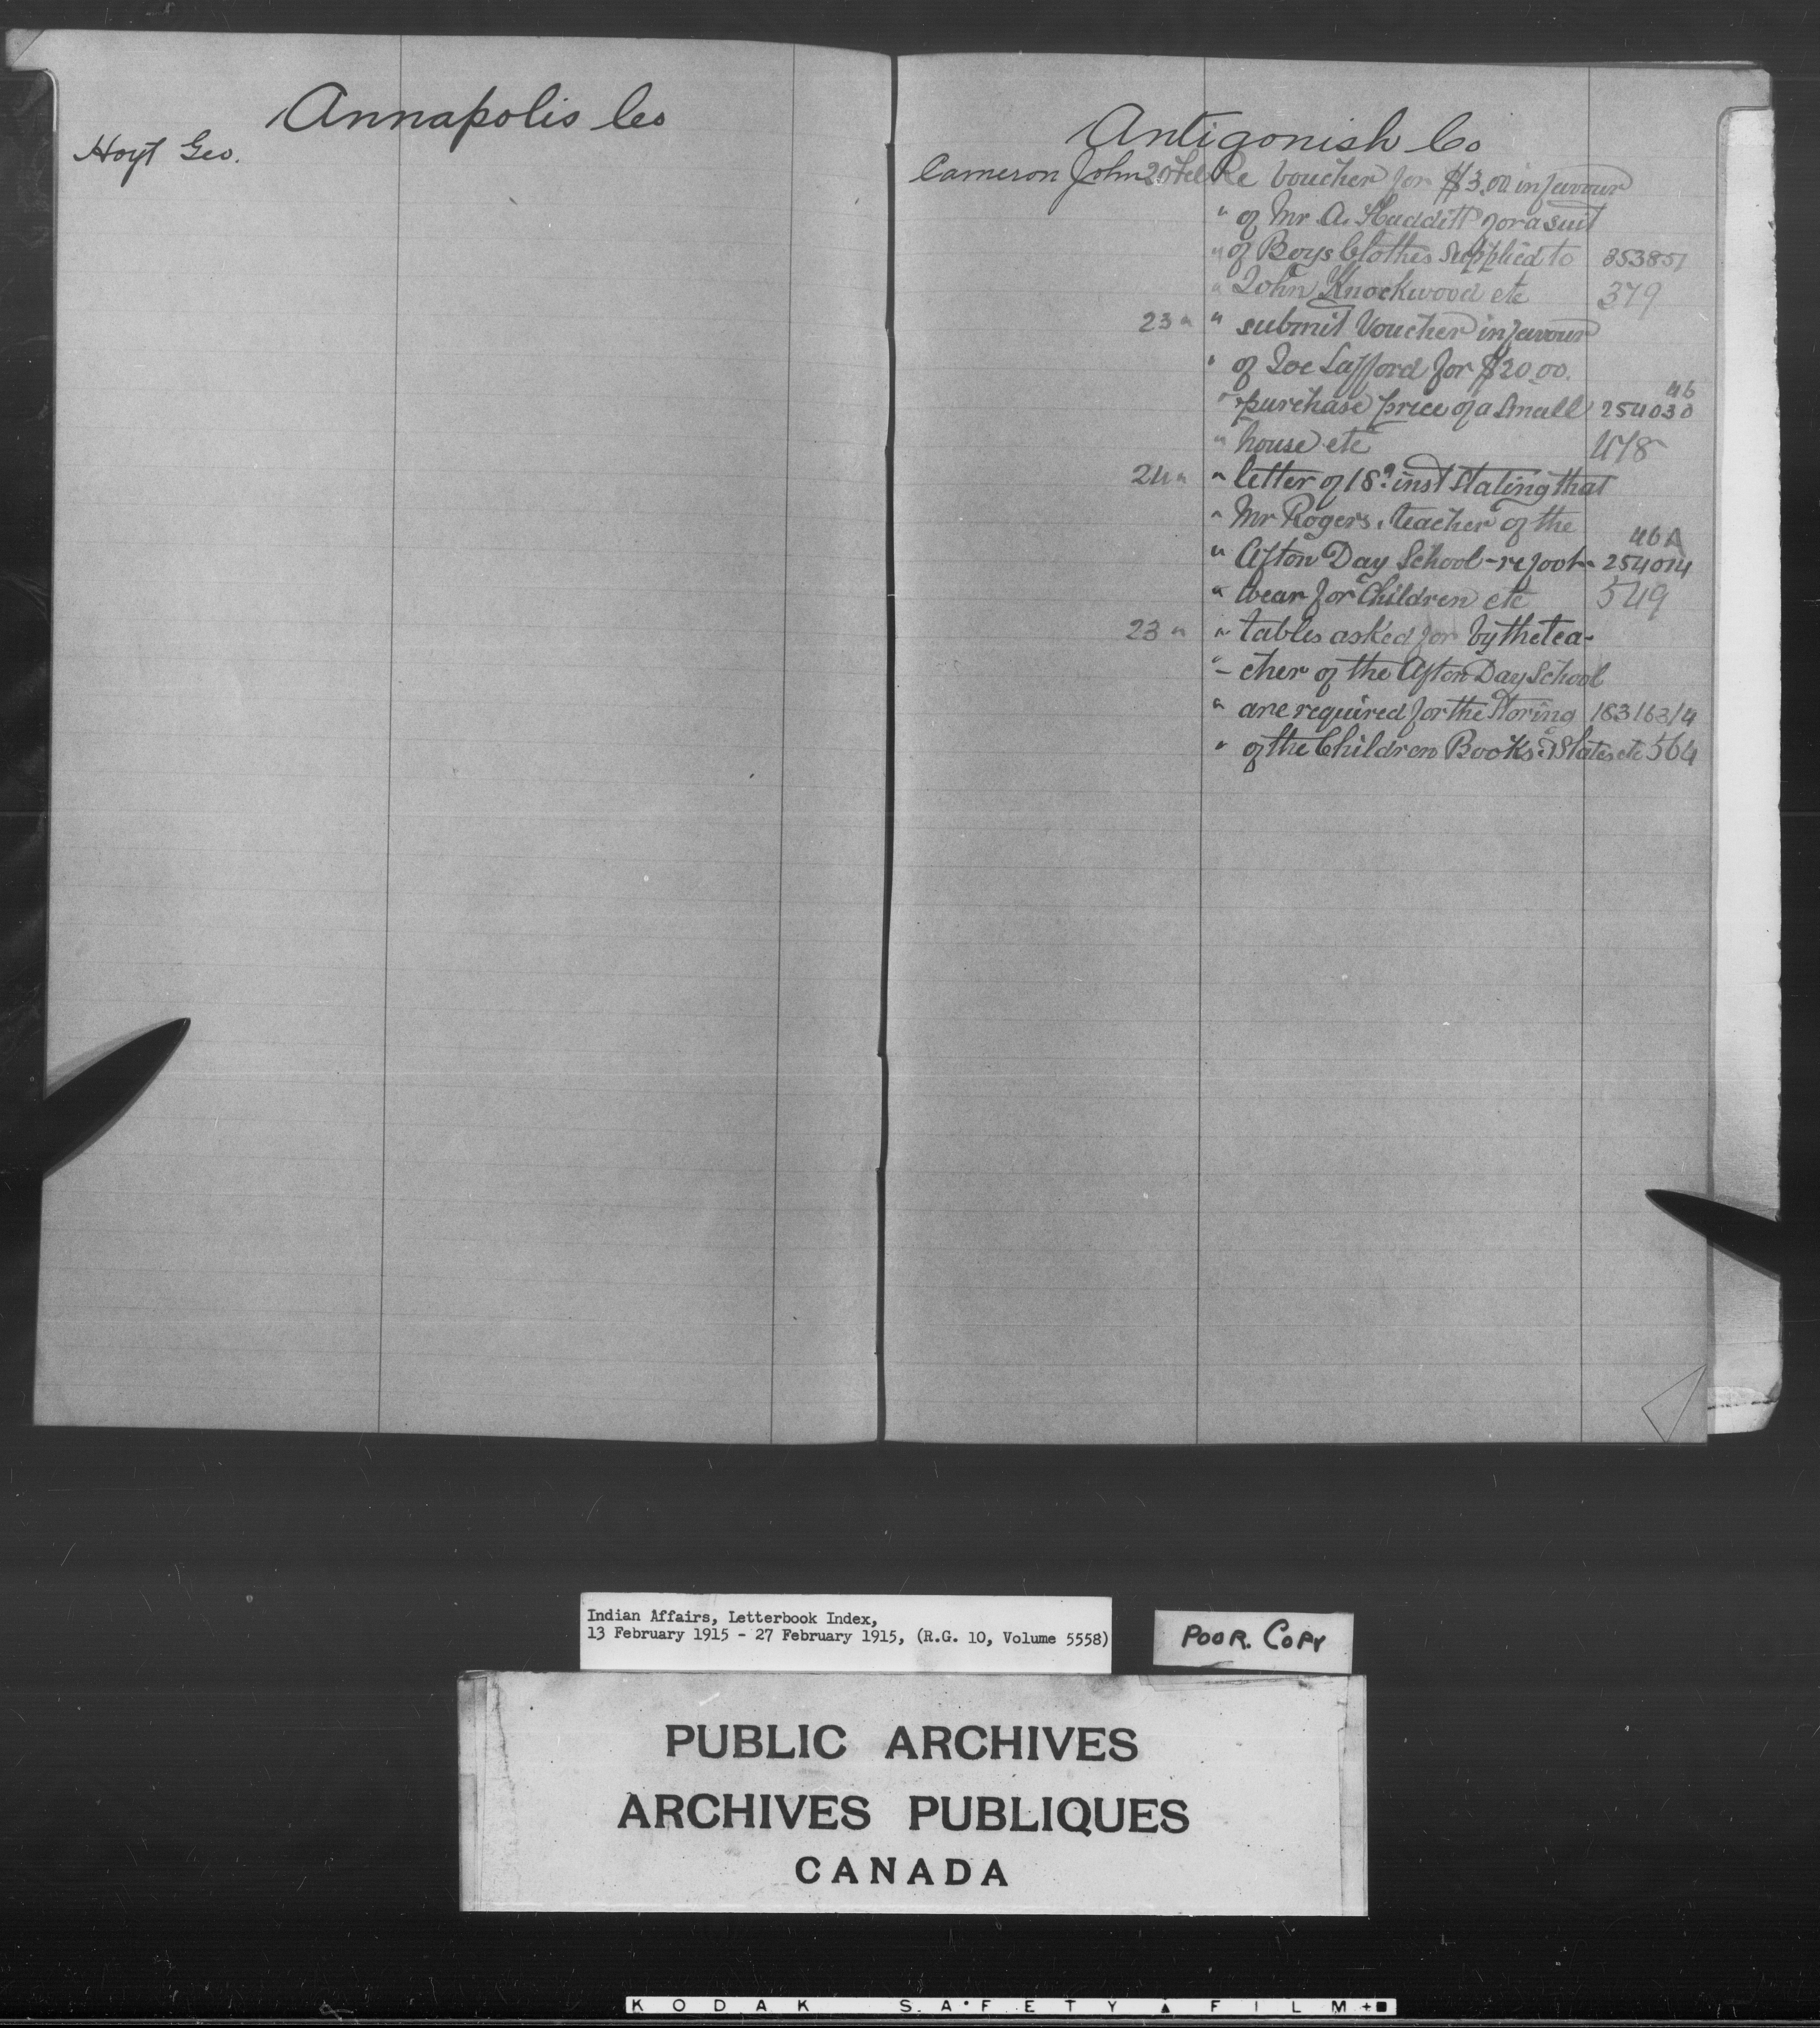 Annapolis Co
Hoyt Geo.
Antigonish Co
Cameron John 20 Feb Re Voucher for $3.00 in favour
" of Mr A. Hadditt for a suit
" of Boys Clothes Supplied to 353851
" John Knockwood etc 379
23 " " submit Voucher in favour
" of Joe Lafford for $20.00.
46
" purchase price of a Small 254030
" house etc 478
24 " " letter of 18th inst Stating that
" Mr Rogers, teacher of the
46A
" Afton Day School - re foot- 254014
" wear for Children etc 549
23 " " tables asked for by the tea-
" - cher of the Afton Day School
" are required for the Storing 183163/4
" of the Children Books & Slates etc 564
Indian Affairs, Letterbook Index,
13 February 1915 - 27 February 1915, (R.G. 10, Volume 5558)
POOR. COPY
PUBLIC ARCHIVES
ARCHIVES PUBLIQUES
CANADA
KODAK SAFETY FILM